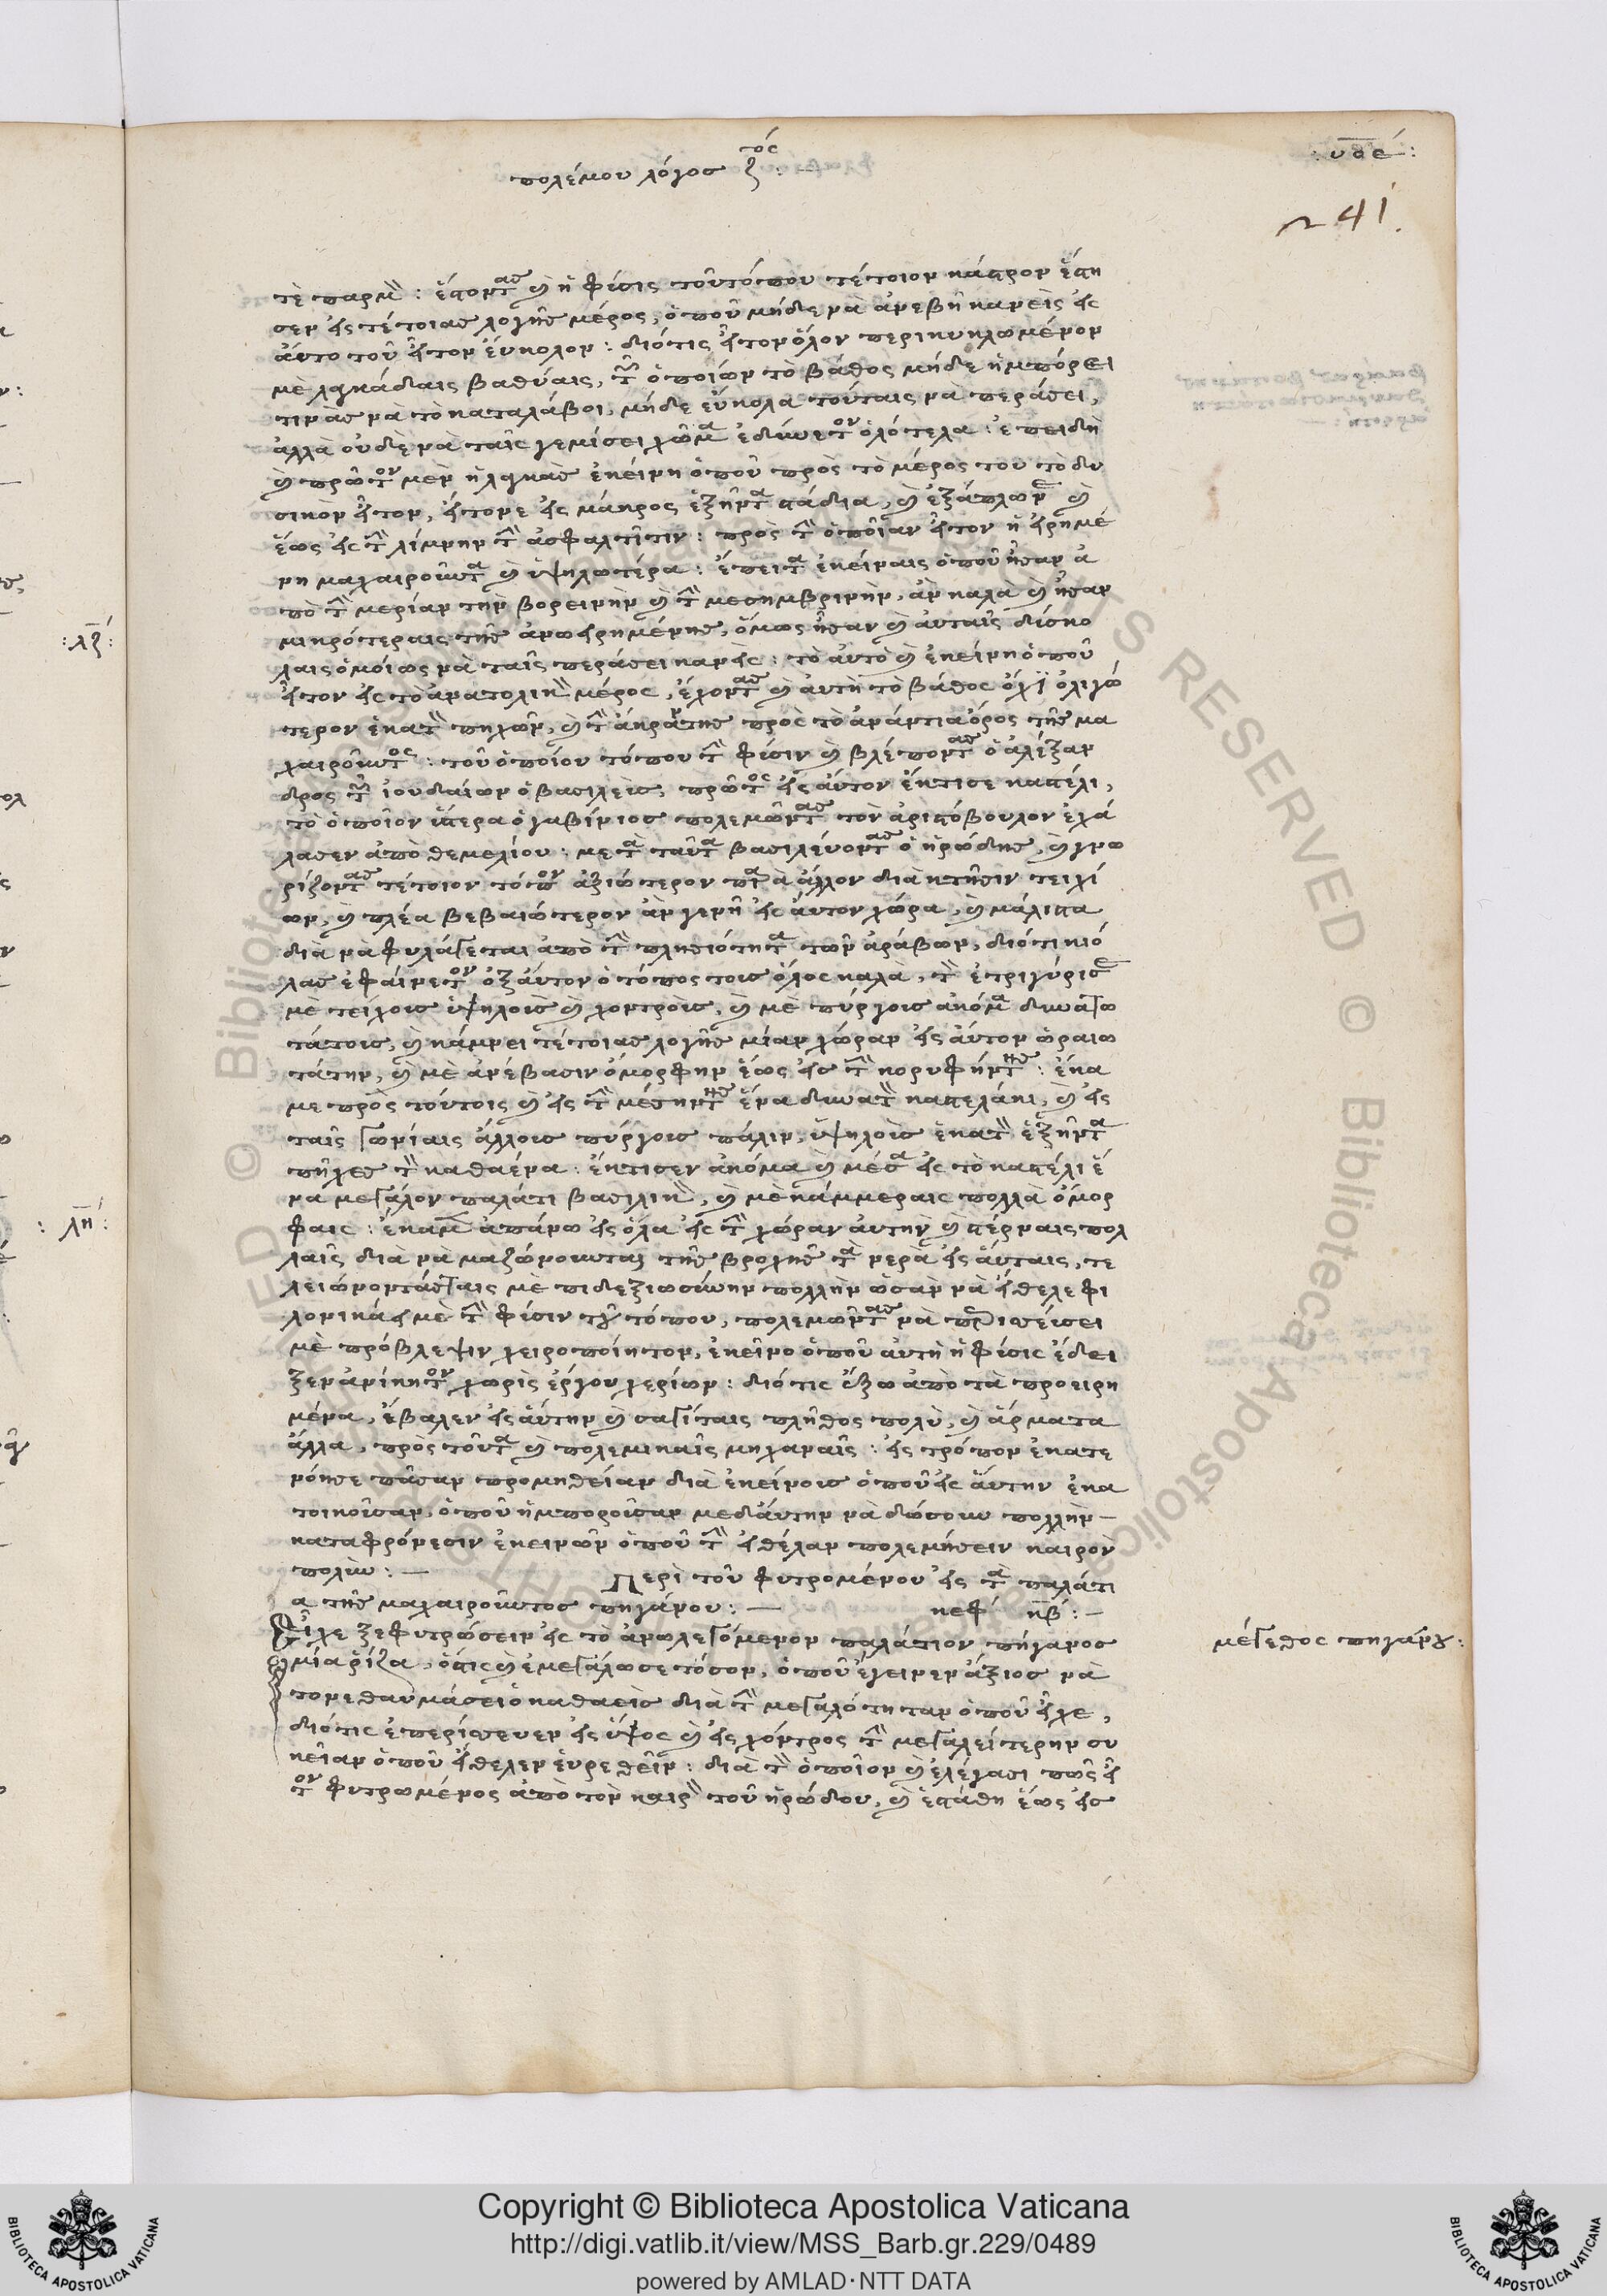 πολέμου λόγος ζτος :
: υοε :
241.
τὲ παρμὸ : ἔστοντας καὶ ἡ φύσις τοῦ τόπου τέτοιον κάστρον ἔστη
σεν εἰς τέτοιας λογῆς μέρος, ὁποῦ μήδε νὰ ἀνεβῆ κανεὶς εἰς
ἀυτο τοῦ ἦτον ἔυκολον : διότις ἦτον ὅλον περικυκλωμένον
μὲ λαγκάδαις βαθύαις, τῶν ὁποίων τὸ βάθος μήδε ἠμπόρει
τινὰς νὰ τὸ καταλάβοι, μήδε εὔκολα τούταις νὰ περάσει,
ἀλλὰ οὐδὲ νὰ ταῖς γεμίσει χῶμα ἐδύνετον ὁλότελα : ἐπειδὴ
καὶ πρῶτον μὲν ἡ λαγκὰς ἐκείνη ὁποῦ πρὸς τὸ μέρος του τὸ δυ
τικὸν ἦτον, ἦτονε εἰς μάκρος ἑξῆντα στάδια, καὶ ἐξάπλωνε καὶ
ἕως εἰς τὴν λίμνην τὴν ἀσφαλτῖτιν : πρὸς τὴν ὁποῖαν ἦτον ἡ εἰρημέ
νη μαχαιροῦντα καὶ ὑψηλωτέρα : ἔπειτα ἐκείναις ὁποῦ ἦσαν ἀ
πὸ τὴν μερίαν τὴν βορεινὴν καὶ τὴν μεσημβρινὴν, ἂν καλὰ καὶ ἦσαν
μικρότεραις τῆς ἀνωειρημένης, ὅμως ἦσαν καὶ ἀυταῖς δύσκο
λαις ὁμοίως νὰ ταῖς περάσει κανείς : τὸ ἀυτὸ καὶ ἐκείνη ὁποῦ
ἦτον εἰς τὸ ἀνατολικὸν μέρος, ἔχοντας καὶ ἀυτὴ τὸ βάθος ὄχι ὀλιγώ
τερον ἑκατὸν πηχῶν, καὶ τὴν ἄκραν της πρὸς τὸ ἀνάντια ὄρος τῆς μα
χαιροῦντος : τοῦ ὁποίου τόπου τὴν φύσιν καὶ βλέποντας ὁ ἀλέξαν
δρος τῶν ἰουδαίων ὁ βασιλεὺς, πρῶτος εἰς ἀυτον ἔκτισε καστέλι,
τὸ ὁποῖον ὕστερα ὁ γαβίνιος πολεμῶντας τὸν ἀριστόβουλον ἐχά
λασεν ἀπὸ θεμελίου : μετὰ ταῦτα βασιλεύοντας ὁ ἡρώδης, καὶ γνω
ρίζοντας τέτοιον τόπον ἀξιώτερον παρὰ ἄλλον διὰ κτῆσιν τειχί
ων, καὶ πλέα βεβαιότερον ἂν γενῆ εἰς ἀυτον χώρα, καὶ μάλιστα
διὰ νὰ φυλάγεται ἀπὸ τὴν πλησιότητα τῶν ἀράβων, διότι κιό
λας ἐφαίνετον ὀξάυτον ὁ τόπος τους ὅλος καλὰ, τὸν ἐτριγύρισε
μὲ τείχους ὑψηλοὺς καὶ χοντροὺς, καὶ μὲ πύργους ἀκόμα δυνατω
τάτους, καὶ κάμνει τέτοιας λογῆς μίαν χώραν εἰς ἀυτον ὡραιω
τάτην, καὶ μὲ ἀνέβασιν ὄμορφην ἕως εἰς τὴν κορυφήν της : ἔκα
με πρὸς τούτοις καὶ εἰς τὴν μέσην της ἕνα δυνατὸν καστελάκι, καὶ εἰς
ταῖς γωνίαις ἄλλους πύργους πάλιν, ὑψηλοὺς ἑκατὸν ἑξῆντα
πῆχες τὸν καθαένα : ἔκτισεν ἀκόμα καὶ μέσα εἰς τὸ καστέλι ἕ
να μεγάλον παλάτι βασιλικὸν, καὶ μὲ κάμμεραις πολλὰ ὄμορ
φαις : ἔκαμεν ἀπάνω εἰς ὅλα εἰς τὴν χώραν ἀυτὴν καὶ στέρναις πολ
λαῖς διὰ νὰ μαζώνουνται τῆς βροχῆς τὰ νερὰ εἰς ἀυταις, τε
λειώνοντάς ταις μὲ πιδεξιωσύνην πολλὴν ὡσὰν νὰ ἤθελε φι
λονικάει μὲ τὴν φύσιν τοῦ τόπου, πολεμῶντας νὰ περισσεύσει
μὲ πρόβλεψιν χειροποίητον, ἐκεῖνο ὁποῦ ἀυτὴ ἡ φύσις ἔδει
ξεν ἀνίκητον χωρὶς ἔργον χερίων : διότις ἔξω ἀπὸ τὰ προειρη
μένα, ἔβαλεν εἰς ἀυτην καὶ σαγίταις πλῆθος πολὺ, καὶ ἄρματα
ἄλλα, πρὸς τοῦτα καὶ πολεμικαῖς μηχαναῖς : εἰς τρόπον ἐκατε
νόησε πᾶσαν προμηθείαν διὰ ἐκείνους ὁποῦ εἰς ἀυτην ἐκα
τοικοῦσαν, ὁποῦ ἠμποροῦσαν μεδάυτην νὰ δώσουν πολλὴν –
καταφρόνεσιν ἐκεινῶν ὁποῦ τὴν ἤθελαν πολεμήσειν καιρὸν
πολύν : — Περὶ τοῦ φυτρομένου εἰς τὰ παλάτι
α τῆς μαχαιροῦντος πηγάνου : — κεφ κβ : –
Εἶχε ξεφυτρώσειν εἰς τὸ ἀνωλεγόμενον παλάτιον πήγανος
μία ῥίζα, ὅστις καὶ ἐμεγάλωσε τόσον, ὁποῦ ἔγεινεν ἄξιος νὰ
τονε θαυμάσει ὁ καθαεὶς διὰ τὴν μεγαλότηταν ὁποῦ εἶχε,
διότις ἐπερίσσευεν εἰς ὕψος καὶ εἰς χόντρος τὴν μεγαλείτερην συ
κεῖαν ὁποῦ ἤθελεν ἑυρεθεῖν : διὰ τὸ ὁποῖον καὶ ἐλέγασι πῶς ἦ
τον φυτρωμένος ἀπὸ τὸν καιρὸν τοῦ ἡρώδου, καὶ ἐστάθη ἕως εἰς
μέγεθος πηγάνου :
: λζ :
: λη :
Copyright © Biblioteca Apostolica Vaticana
http://digi.vatlib.it/view/MSS_Barb.gr.229/0489
powered by AMLAD·NTT DATA
BIBLIOTECA APOSTOLICA VATICANA
BIBLIOTECA APOSTOLICA VATICANA